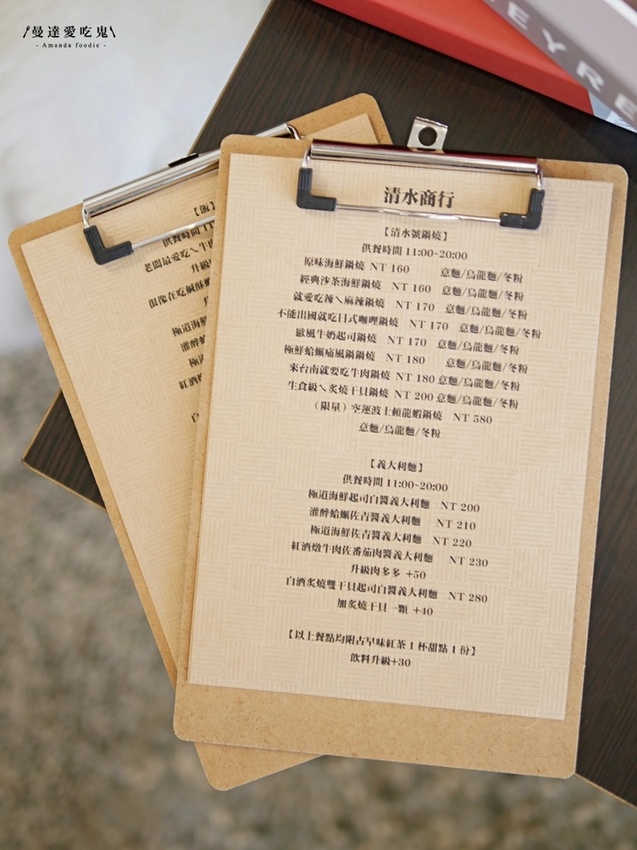 曼達愛吃鬼
- Amanda foodie -
EYRE
清水商行
【清水號鍋燒】
供餐時間 11:00~20:00
原味海鮮鍋燒 NT 160 意麵/烏龍麵/冬粉
經典沙茶海鮮鍋燒 NT 160 意麵/烏龍麵/冬粉
就愛吃辣ㄟ麻辣鍋燒 NT 170 意麵/烏龍麵/冬粉
不能出國就吃日式咖哩鍋燒 NT 170 意麵/烏龍麵/冬粉
歐風牛奶起司鍋燒 NT 170 意麵/烏龍麵/冬粉
極鮮蛤蠣痛風鍋鍋燒 NT 180 意麵/烏龍麵/冬粉
來台南就要吃牛肉鍋燒 NT 180 意麵/烏龍麵/冬粉
生食級ㄟ炙燒干貝鍋燒 NT 200 意麵/烏龍麵/冬粉
（限量）空運波士頓龍蝦鍋燒 NT 580
意麵/烏龍麵/冬粉
【義大利麵】
供餐時間 11:00~20:00
極道海鮮起司白醬義大利麵 NT 200
灌醉蛤蠣佐青醬義大利麵 NT 210
極道海鮮佐青醬義大利麵 NT 220
紅酒燉牛肉佐番茄肉醬義大利麵 NT 230
升級肉多多 +50
白酒炙燒雙干貝起司白醬義大利麵 NT 280
加炙燒干貝一顆 +40
【以上餐點均附古早味紅茶 1 杯甜點 1 份】
飲料升級+30
供餐時間 11
老闆最愛吃ㄟ牛
升級
極道海鮮
灌醉蛤
極道海
紅酒